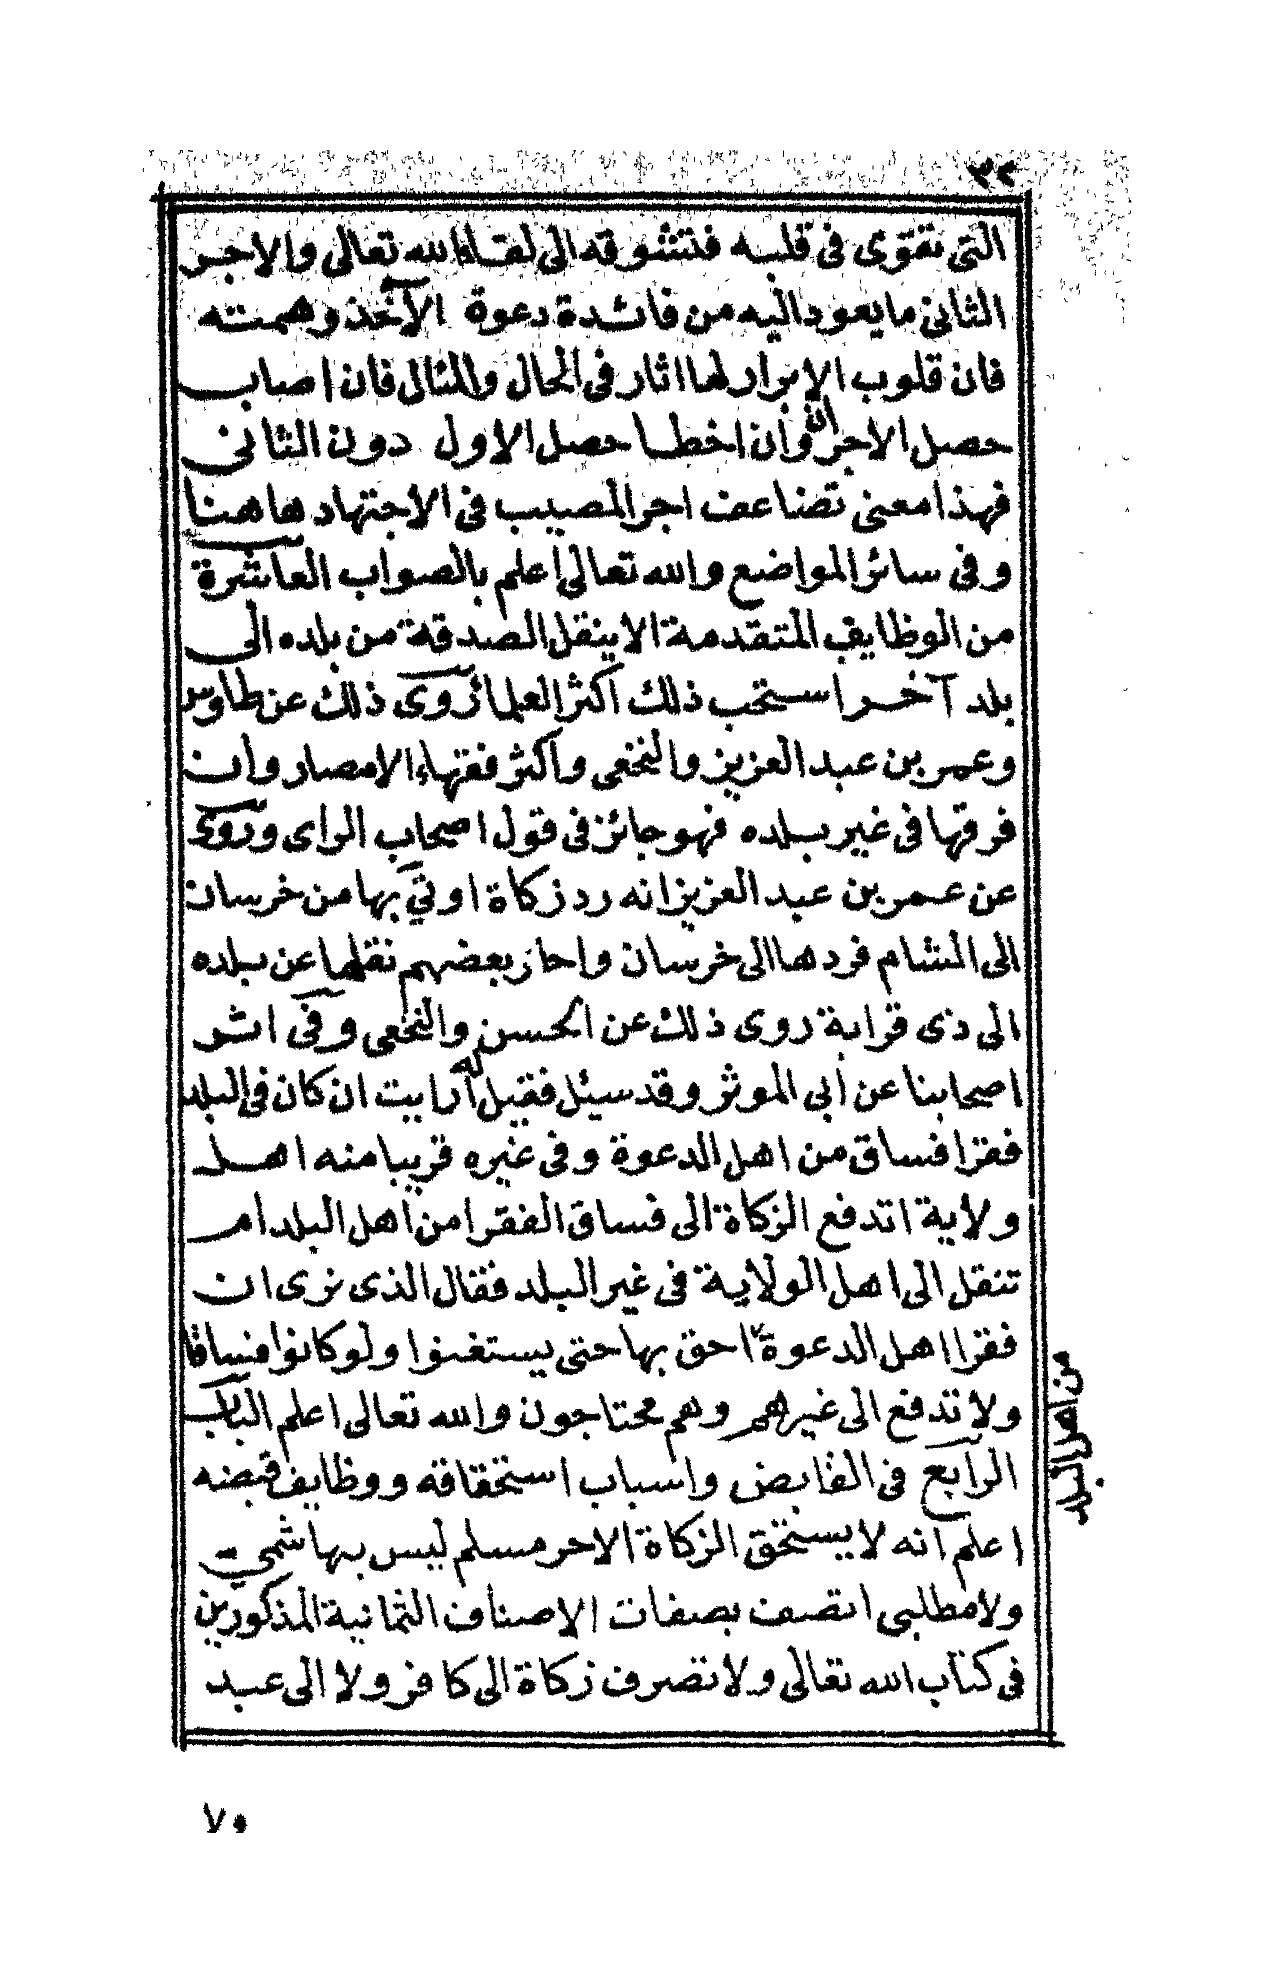 ٣٢
التى تقوى فى قلبه فتشوقه الى لقاء الله تعالى والاجر
الثانى ما يعود اليه من فائدة دعوة الآخذ وهمته
فان قلوب الابرار لها اثار فى الحال والمئال فان اصاب
حصل الاجران وان اخطا حصل الاول دون الثانى
فهذا معنى تضاعف اجر المصيب فى الاجتهاد هاهنا
وفى سائر المواضع والله تعالى اعلم بالصواب العاشرة
من الوظايف المتقدمة الا ينقل الصدقة من بلده الى
بلد آخر استحب ذلك اكثر العلما روى ذلك عن طاوس
وعمر بن عبد العزيز والنخعى واكثر فقهاء الامصار وان
فرقها فى غير بلده فهو جائز فى قول اصحاب الراى وروى
عن عمر بن عبد العزيز انه رد زكاة اوتي بها من خرسان
الى الشام فردها الى خرسان واجاز بعضهم نقلها عن بلده
الى ذى قرابة روى ذلك عن الحسن والنخعى وفى اثر
اصحابنا عن ابى الموثر وقد سيئل فقيل له ارايت ان كان فى البلد
فقرا فساق من اهل الدعوة وفى غيره قريبا منه اهل
ولاية اتدفع الزكاة الى فساق الفقرا من اهل البلد ام
تنقل الى اهل الولاية فى غير البلد فقال الذى نرى ان
فقرا اهل الدعوة احق بها حتى يستغنوا ولو كانوا فساقا
من اهل البلد
ولا تدفع الى غيرهم وهم محتاجون والله تعالى اعلم الباب
الرابع فى القابض واسباب استحقاقه ووظايف قبضه
اعلم انه لا يستحق الزكاة الا حر مسلم ليس بهاشمي
ولا مطلبى اتصف بصفات الاصناف الثمانية المذكورين
فى كتاب الله تعالى ولا تصرف زكاة الى كافر ولا الى عبد
٧٠